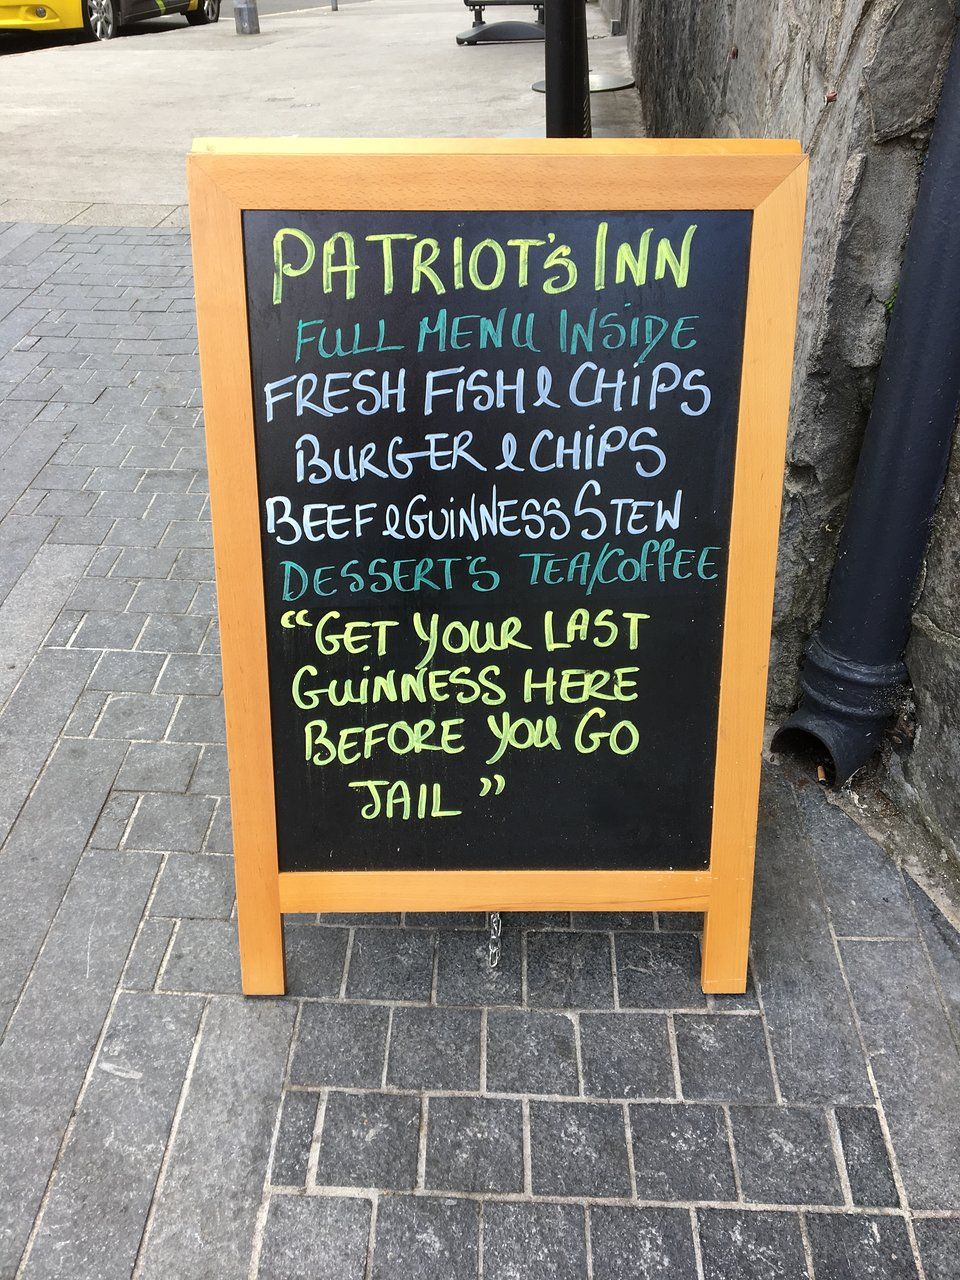 PATRIOT'S INN
FULL MENU INSIDE
FRESH FISH & CHIPS
BURGER & CHIPS
BEEF & GUINNESS STEW
DESSERT'S TEA/COFFEE
“GET YOUR LAST
GUINNESS HERE
BEFORE YOU GO
JAIL”